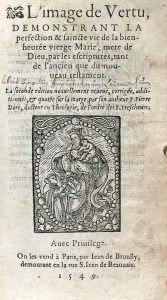 L'image de Vertu,
DEMONSTRANT LA
perfection & saincte vie de la bien-
heurée vierge Marie, mere de
Dieu, par les escriptures, tant
de l'ancien que du nou-
ueau testament.
La seconde edition nouuellement reueue, corrigée, addi-
tionnée, & quotée sur la marge par son autheur F. Pierre
Doré, docteur en Theologie, de l'ordre des F. Prescheurs.
Auec Priuilege.
On les vend à Paris, par Iean de Brouilly,
demourant en la rue S. Iean de Beauuais.
1549.